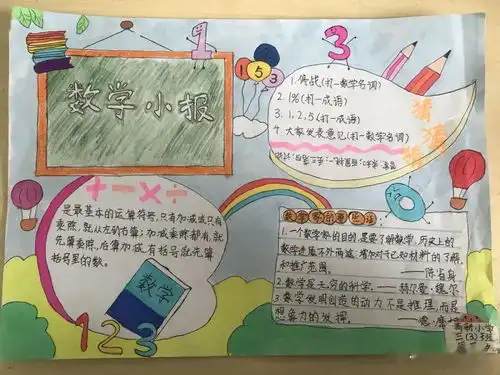 数学小报
1
3
1 5 3
1.停战(打一数学名词)
2.1%(打一成语)
3.1,2,5(打一成语)
4.大家发表意见(打一数学名词)
猜猜
+-×÷
是最基本的运算符号,只有加减或只有
乘除,就从左向右算;加减乘除都有,就
先算乘除,后算加减,有括号就先算
括号里的数。
数学
1 2 3
数学家的
1.一个数学家的目的,是要了解数学。历史上的
数学进展不外两途:增加对于已知材料的了解,
和推广范围。
——陈省身
2.数学是无穷的科学。——赫尔曼·魏尔
3.数学发明创造的动力不是推理,而是
想象力的发挥。——德·摩
小学
三(3)班